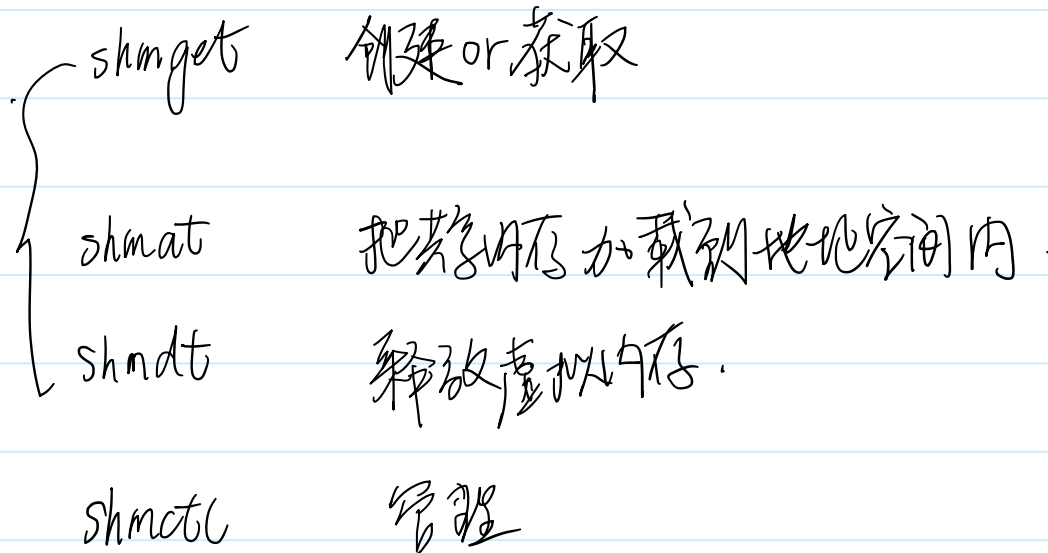 shmget 创建 or 获取
shmat 把共享内存加载到地址空间内.
shmdt 释放虚拟内存.
shmctl 管理